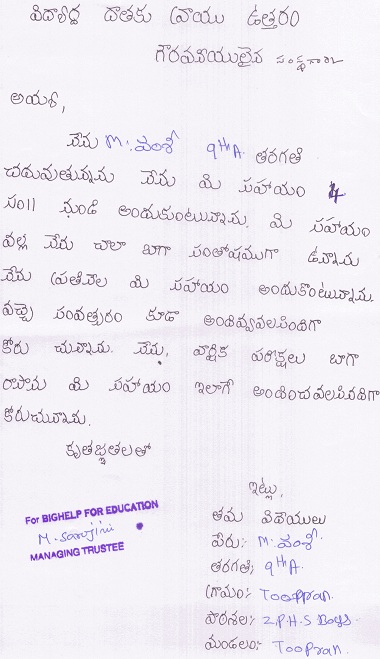 విద్యార్థి దాతకు వ్రాయు ఉత్తరం
గౌరవనీయులైన సంస్థగారు
అయ్యా,
నేను M. వంశీ 9th A. తరగతి
చదువుతున్నాను నేను మి సహాయం 4
సం॥ నుండి అందుకుంటున్నాను. మి సహాయం
వల్ల నేను చాలా బాగా సంతోషముగా ఉన్నాను
నేను ప్రతినెల మి సహాయం అందుకొంటున్నాను.
వచ్చె సంవత్సరం కూడా అందివ్వవలసిందిగా
కోరు చున్నాను. నేను, వార్షిక పరీక్షలు బాగా
రాసాను మి సహాయం ఇలాగే అందించవలసినదిగా
కోరుచున్నాను.
కృతజ్ఞతలతో
ఇట్లు,
తమ విధేయులు
పేరు:- M. వంశీ
తరగతి: 9th A.
గ్రామం:- Toopran.
పాఠశాల:- Z.P.H.S Boys.
మండలం:- Toopran.
For BIGHELP FOR EDUCATION
M. Sarojini
MANAGING TRUSTEE